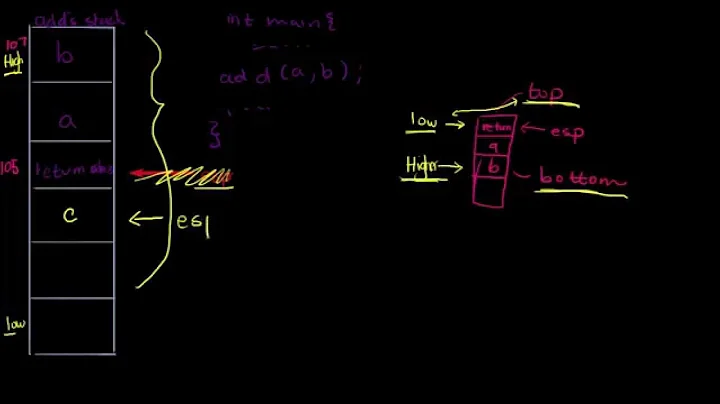 add's stack
107
High
b
a
105
return
c
esp
low
int main{
-----
add(a,b);
}
top
low
return
esp
a
Higher
b
bottom